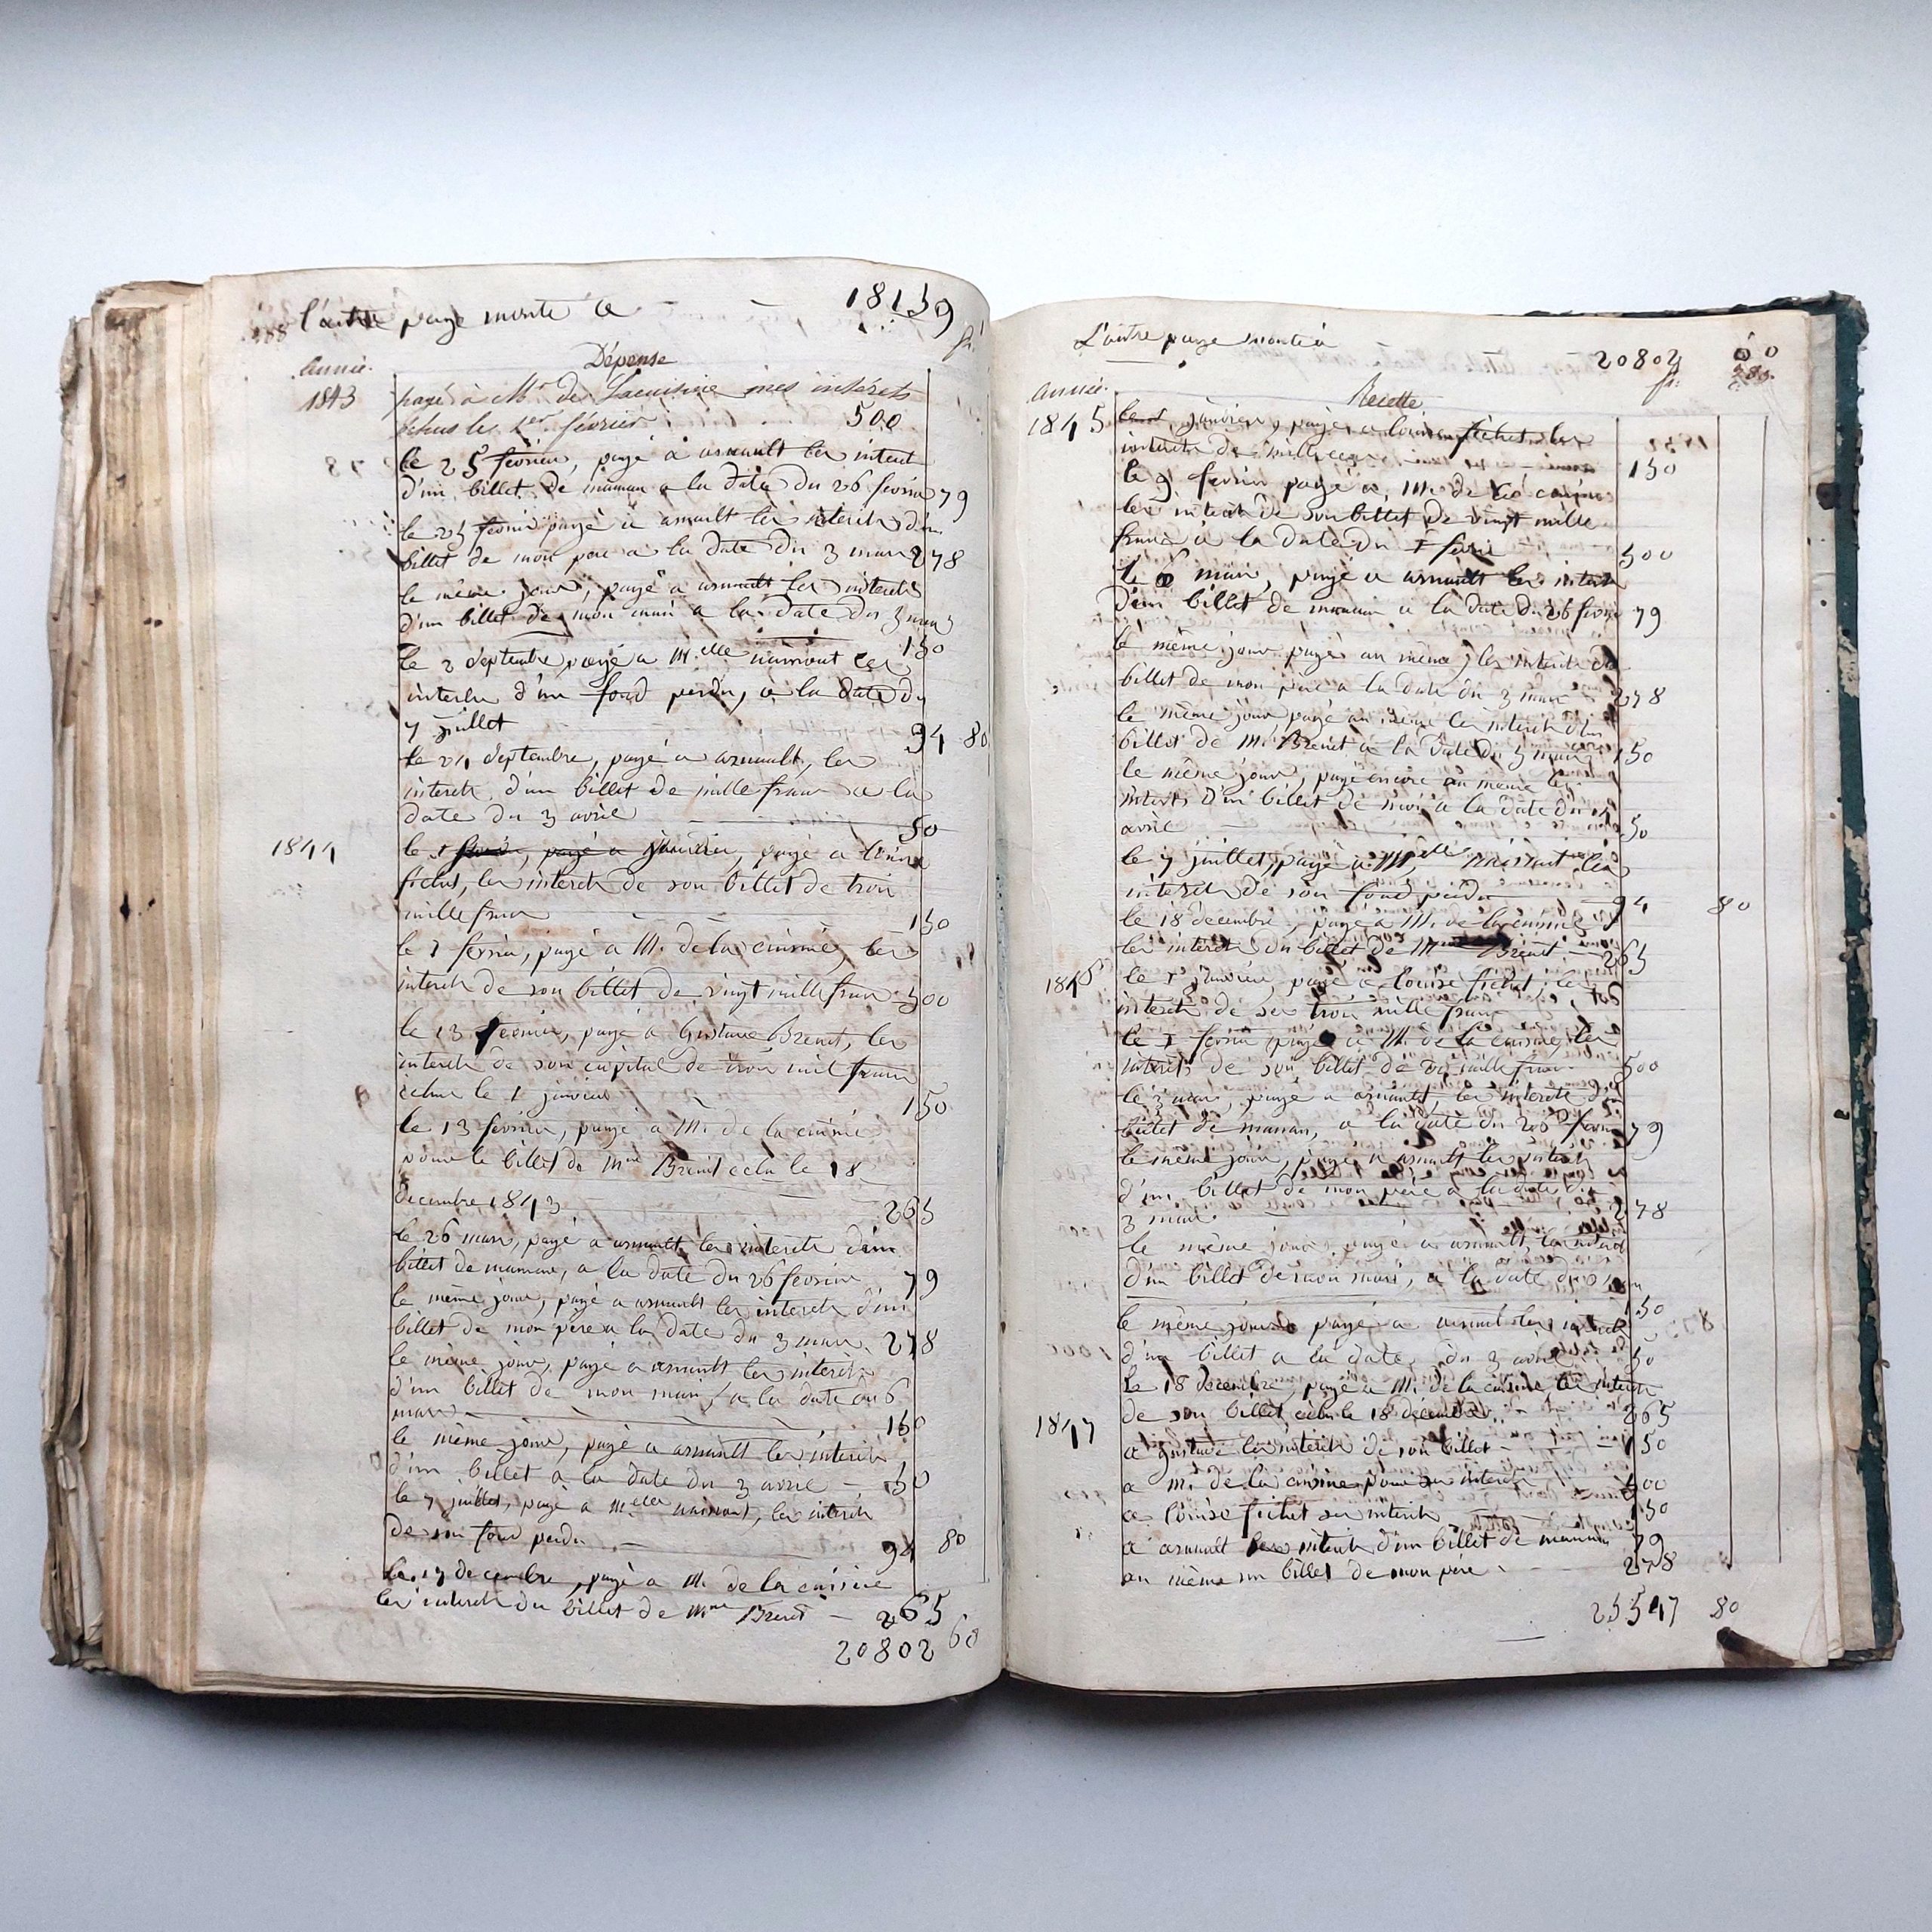 l'autre page monte a 18139
fr.
Dépense
année.
1843 payé à Mr de Lacuisine mes intérêts
échus les 1er février 500
le 25 fevrier, payé a arnault les interet
d'un billet de maman a la date du 26 fevrier 79
le 25 fevrier payé a arnault les interets d'un
billet de mon pere a la date du 3 mars 278
le même jour, payé a arnault les interets
d'un billet de mon mari a la date du 3 mars
150
le 2 septembre payé a Melle les
interets d'un fond perdu, a la date du
7 juillet 94 80
le 24 septembre, payé a arnault, les
interets d'un billet de mille franc a la
date du 3 avril 50
1844 le 1 janvier, payé a Louise
fichet, les interets de son billet de trois
mille franc 150
le 1 fevrier, payé a M. de la cuisine, les
interets de son billet de vingt mille franc 500
le 13 fevrier, payé a Gustave Brenet, les
interets de son capital de trois mil franc
échu le 1 janvier 150
le 13 février, payé a M. de la cuisine
pour le billet de Mme Brenet échu le 18
decembre 1843 265
le 26 mars, payé a arnault les interets d'un
billet de maman, a la date du 26 fevrier 79
le même jour, payé a arnault les interets d'un
billet de mon pere a la date du 3 mars 278
le même jour, payé a arnault les interets
d'un billet de mon mari, a la date du 6
mars 150
le même jour, payé a arnault les interets
d'un billet a la date du 3 avril 50
le 7 juillet, payé a Melle les interets
de son fond perdu 94 80
le 17 decembre, payé a M. de la cuisine
les interets du billet de Mme Brenet 265
20802 60
L'autre page monte à 20802 60
fr.
Recette
année.
1845 janvier, payé a louise fichet les
interets de mille 150
le 9 fevrier payé a M. de la cuisine
les interets de son billet de vingt mille
francs a la date du 1 fevrier 500
le 6 mars, payé a arnault les interets
d'un billet de maman a la date du 26 fevrier 79
le même jour payé au même les interets du
billet de mon père a la date du 3 mars 278
le même jour payé au même les interets d'un
billet de M. Brenet a la date du 3 mars 150
le même jour, payé encore au meme les
interets d'un billet de moi a la date du
avril 50
le 7 juillet, payé a Melle les
interets de son fond perdu 94 80
le 18 decembre, payé a M. de la cuisine
les interets du billet de M Brenet 265
1846 le 1 janvier payé a louise fichet les
interets de ses trois mille franc
le 1 fevrier payé a M. de la cuisine les
interets de son billet de mille franc 500
le 3 mars, payé a arnault, les interets d'un
billet de maman, a la date du 26 fevrier 79
le même jour, payé a arnault les interets
d'un billet de mon père a la date du
3 mars 278
le même jour payé a arnault, les interets
d'un billet de mon mari, a la date du 3 mars
150
le même jour payé a arnault les interets
d'un billet a la date du 3 avril 50
le 18 decembre, payé a M. de la cuisine les interets
de son billet échu le 18 decembre 265
1847 a gustave les interets de son billet 150
a M. de la cuisine pour ses interets 500
a louise fichet ses interets 150
a arnault les interets d'un billet de maman 79
au même un billet de mon père 278
25547 80